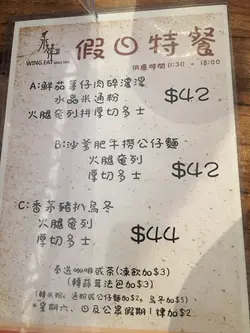 永年
WING EAT
假日特餐
供應時間 11:30 - 18:00
A:鮮茄薯仔肉碎濃湯
水晶米通粉
火腿奄列拼厚切多士
$42
B:沙爹肥牛撈公仔麵
火腿奄列
厚切多士
$42
C:香茅豬扒烏冬
火腿奄列
厚切多士
$44
奉送咖啡或茶(凍飲加$3)
(轉蒜茸法包加$3)
(轉米粉、通粉或公仔麵加$2。烏冬加$5)
*星期六、日及公眾假期1律加$2